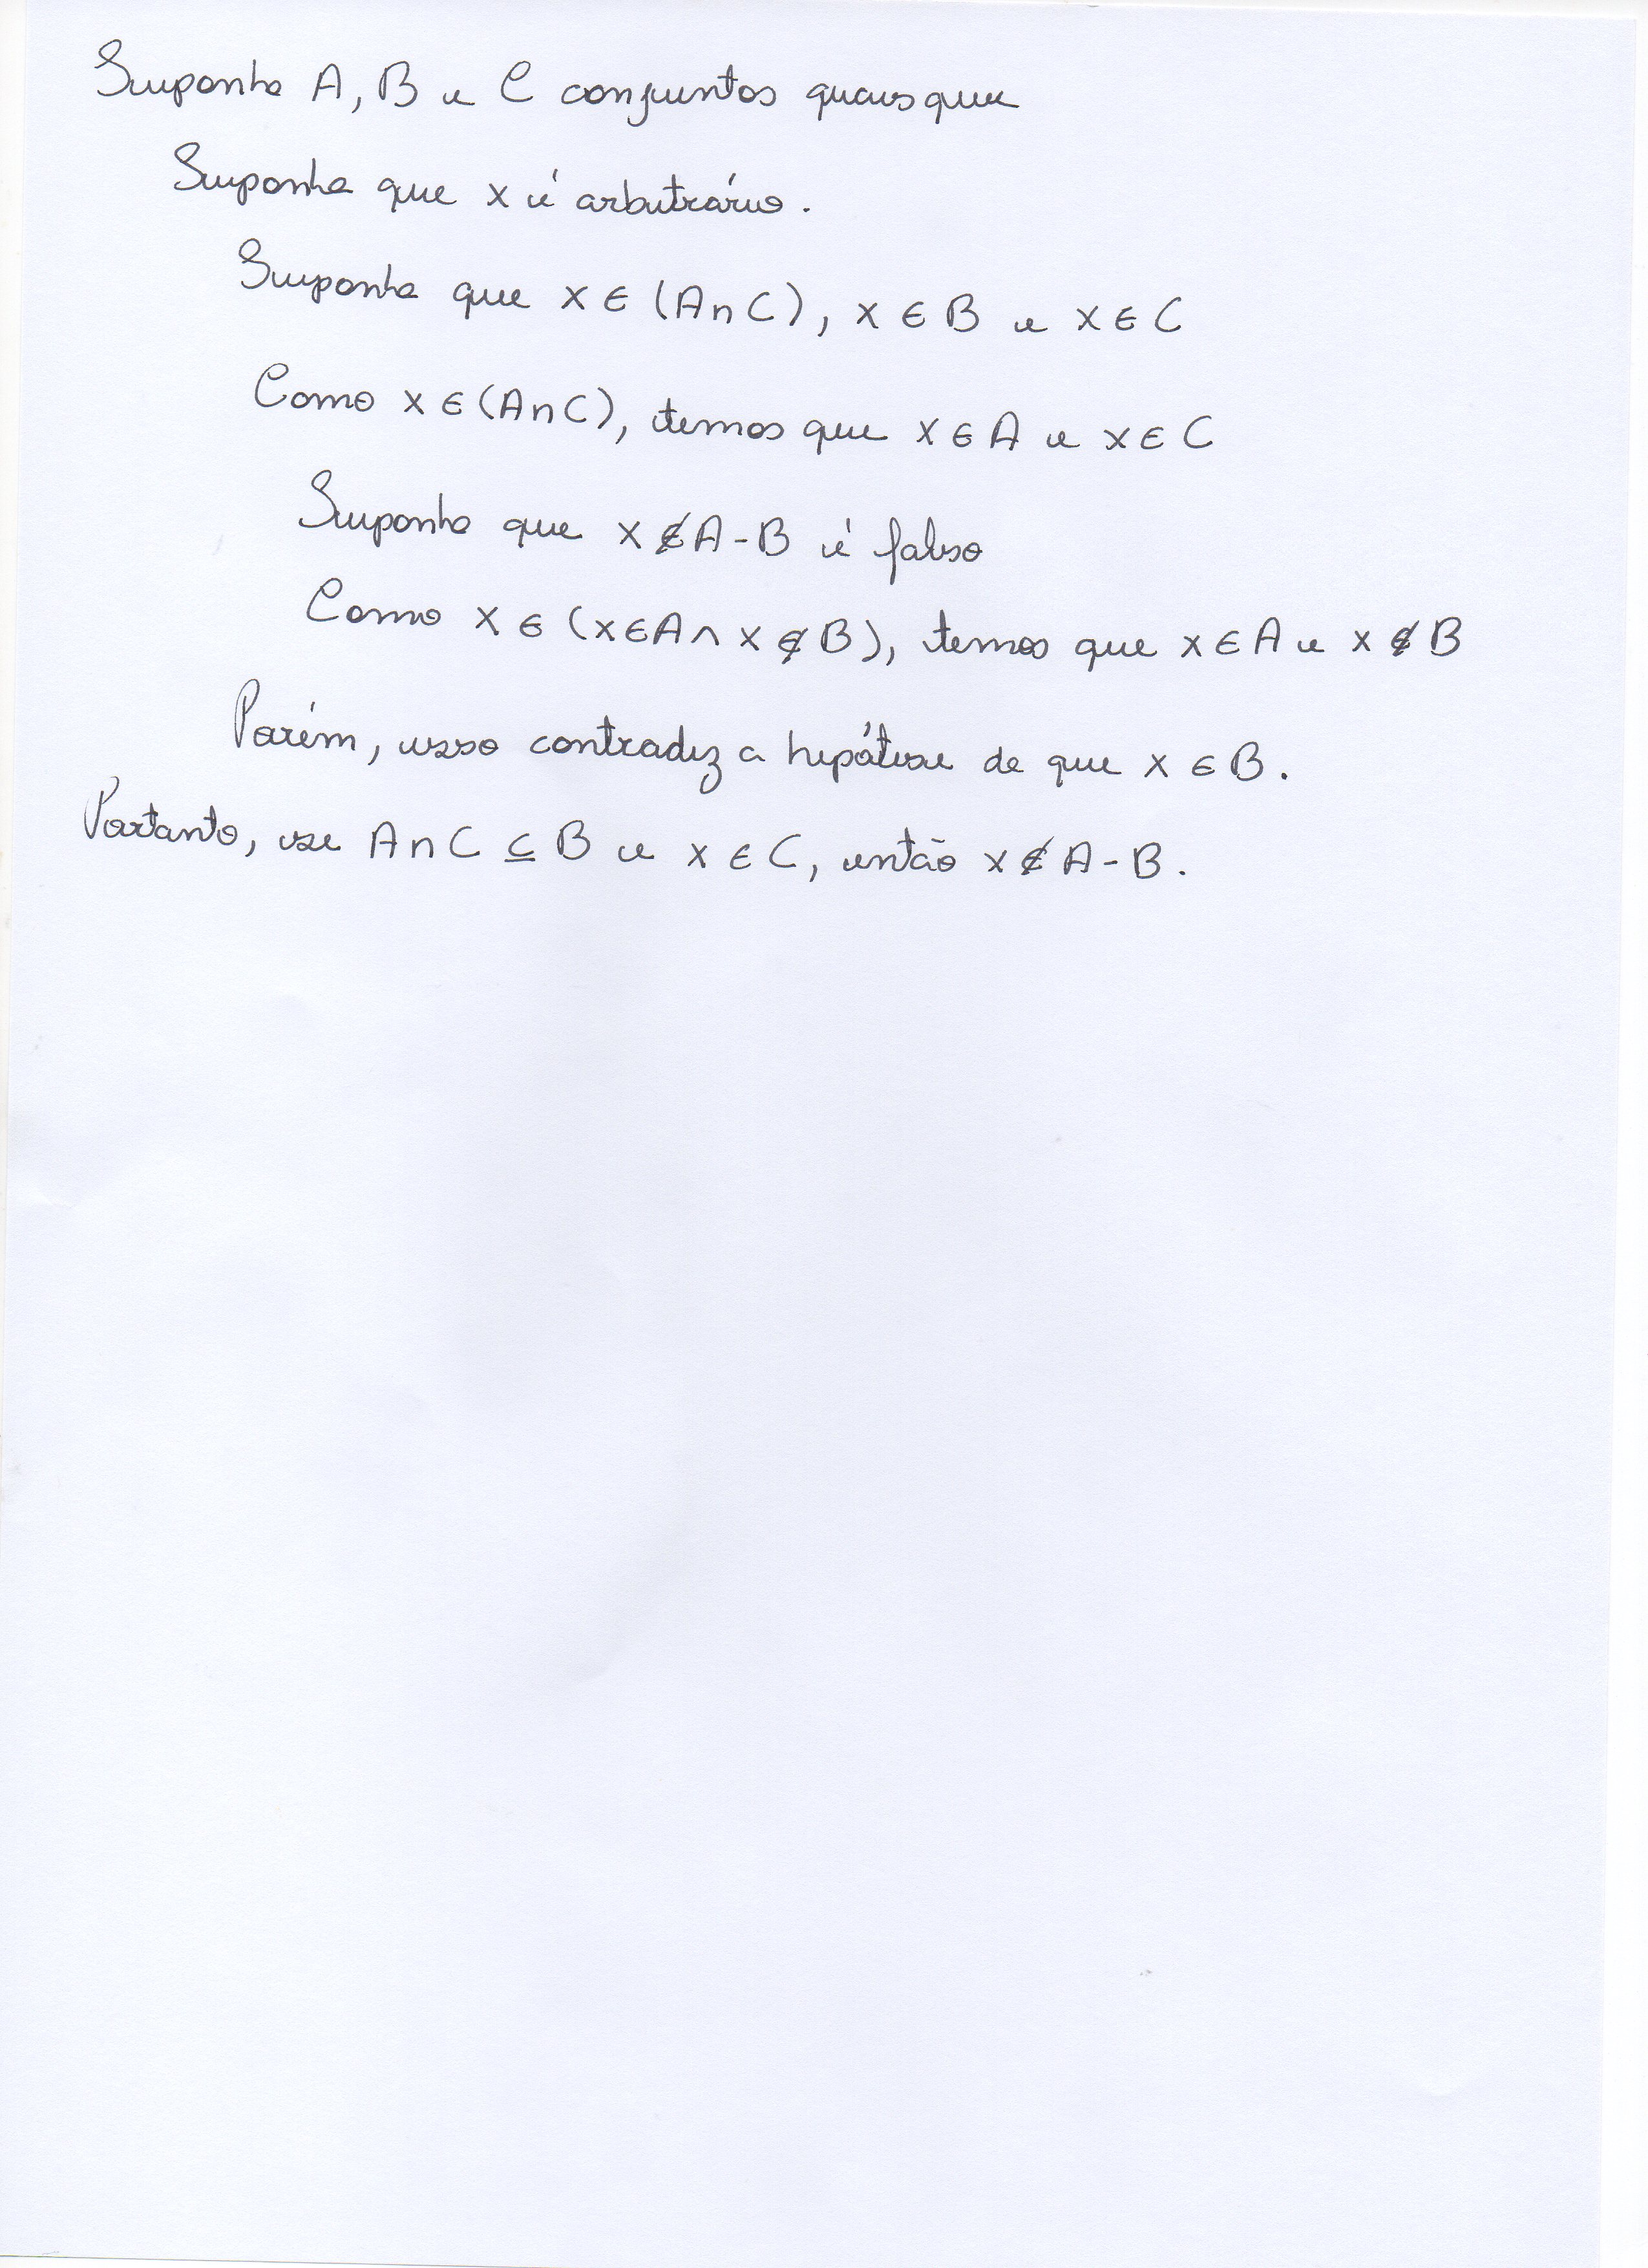 Suponha A, B e C conjuntos quaisquer
Suponha que x é arbitrário.
Suponha que x ∈ (A∩C), x ∈ B e x ∈ C
Como x ∈ (A∩C), temos que x ∈ A e x ∈ C
Suponha que x ∉ A - B é falso
Como x ∈ (x ∈ A ∧ x ∉ B), temos que x ∈ A e x ∉ B
Porém, isso contradiz a hipótese de que x ∈ B.
Portanto, se A∩C ⊆ B e x ∈ C, então x ∉ A - B.